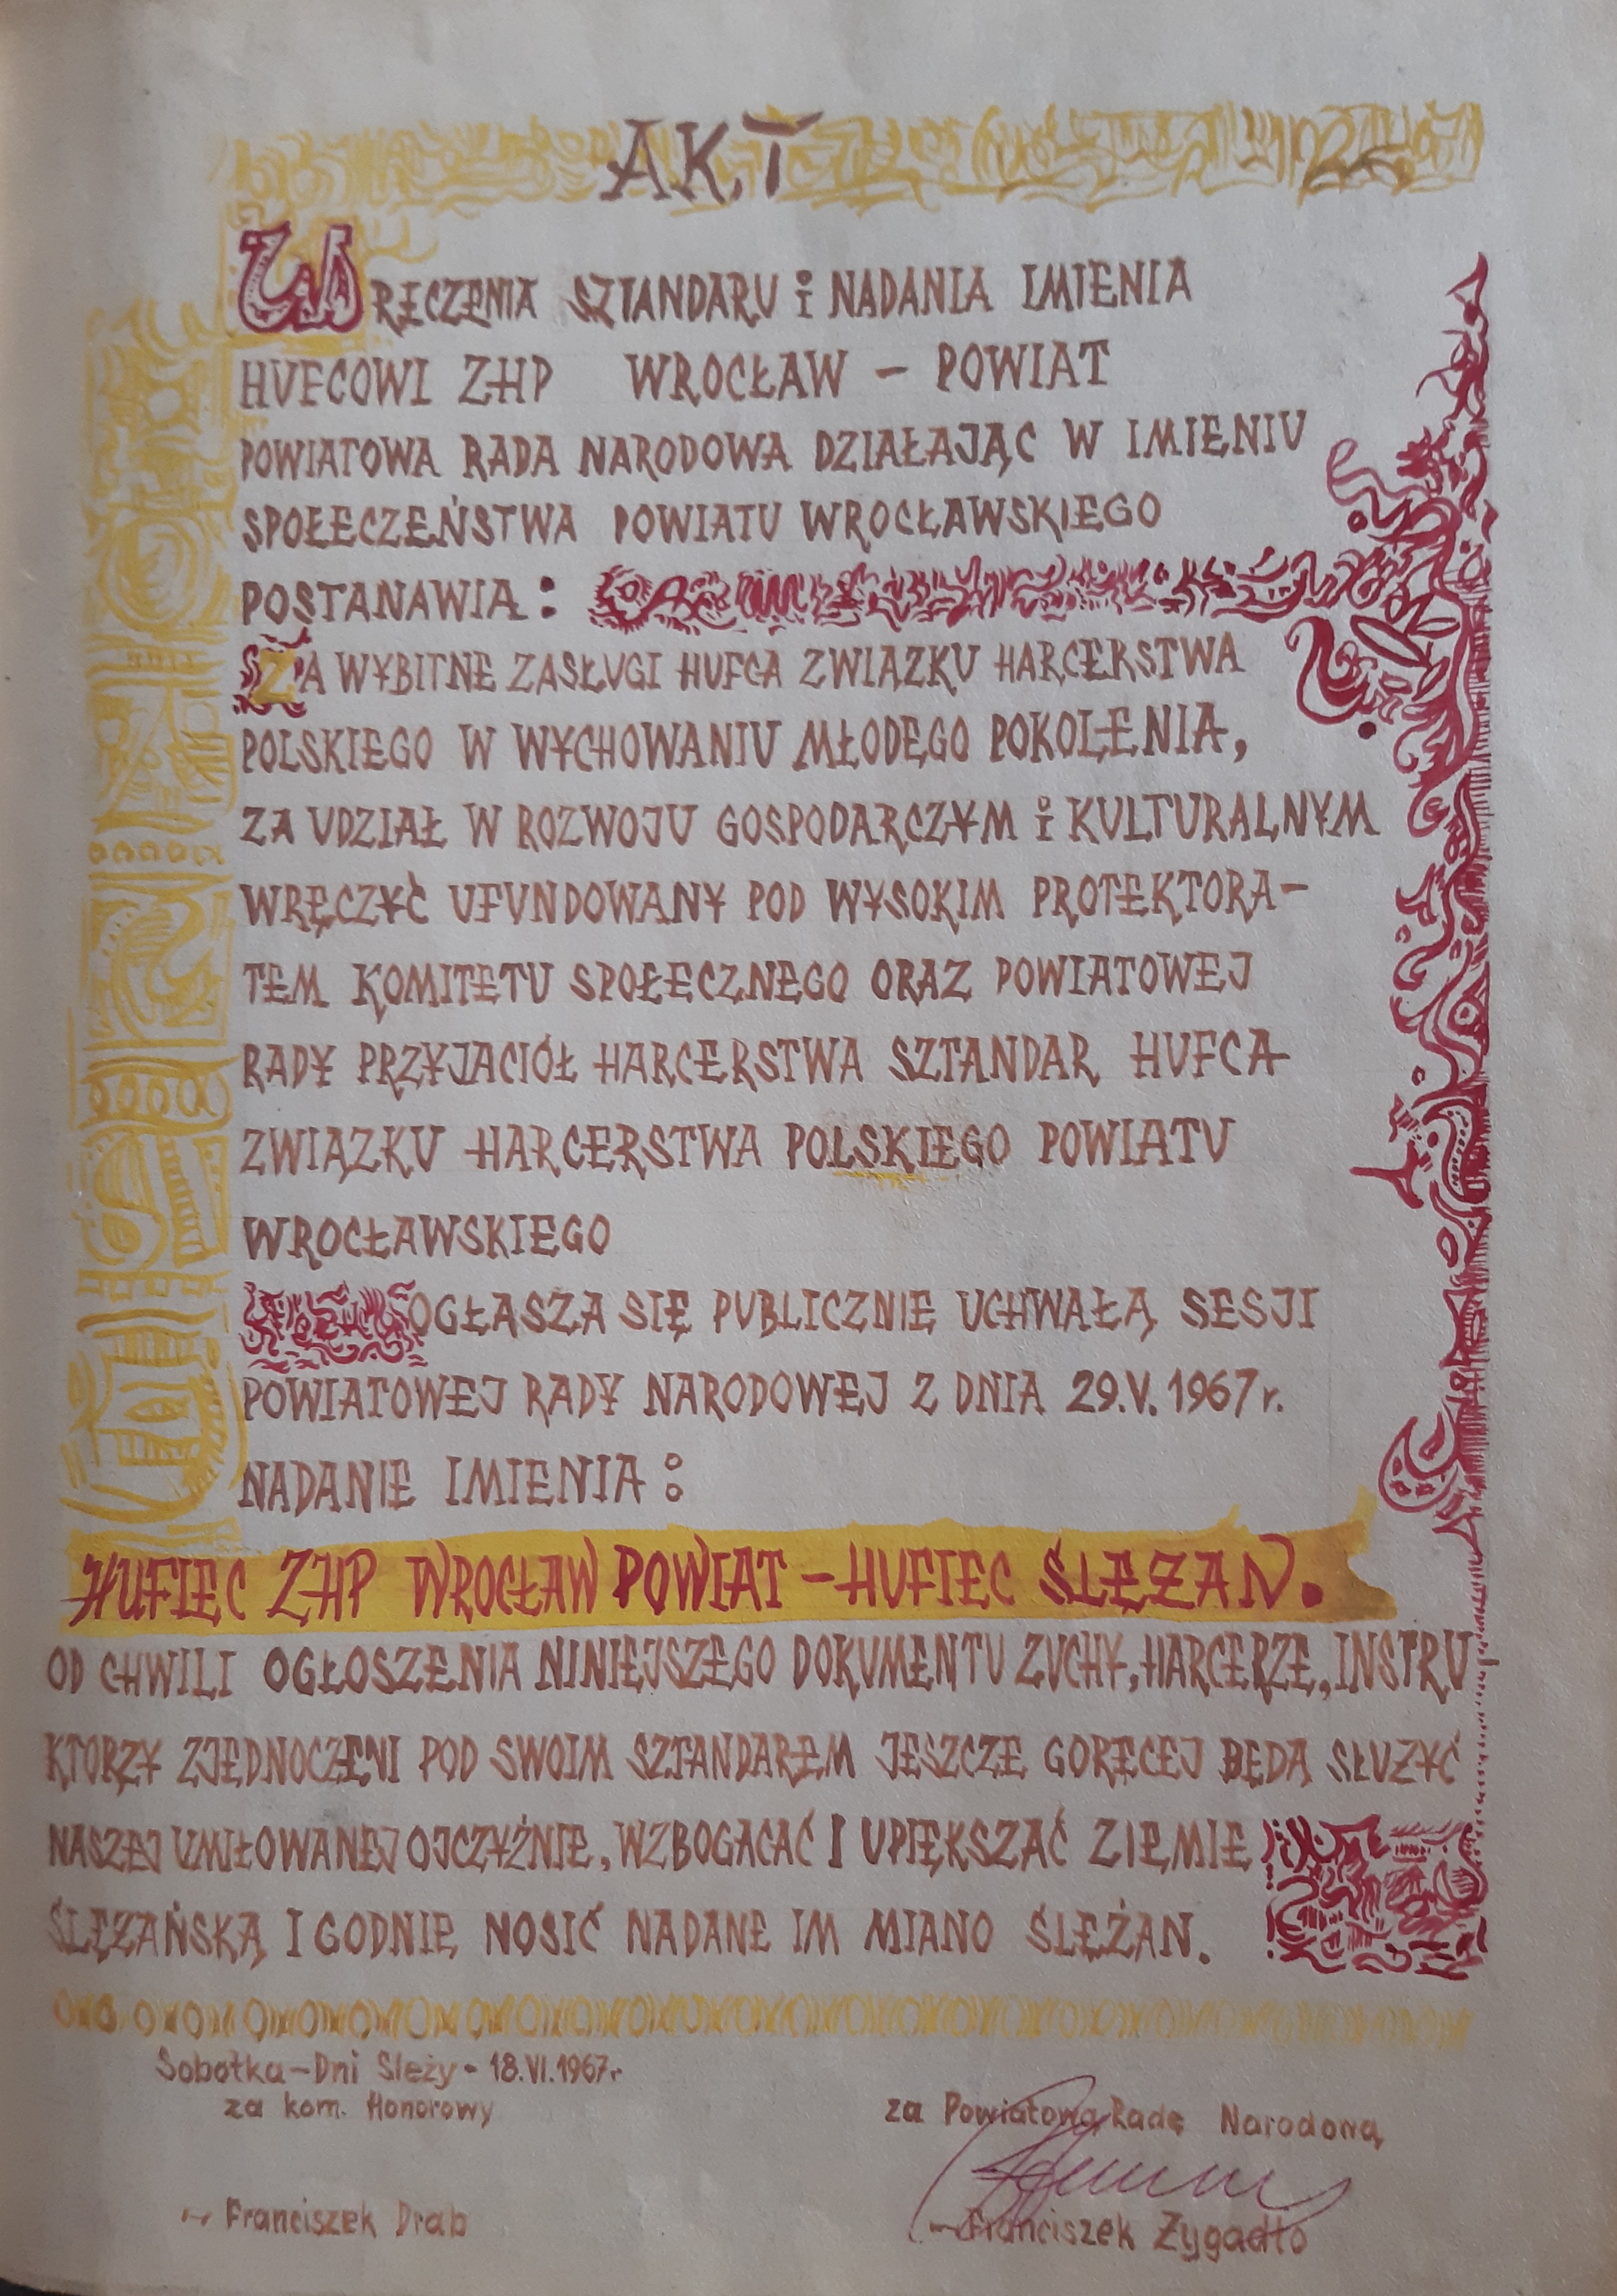 AKT
WRĘCZENIA SZTANDARU i NADANIA IMIENIA
HUFCOWI ZHP WROCŁAW - POWIAT
POWIATOWA RADA NARODOWA DZIAŁAJĄC W IMIENIU
SPOŁECZEŃSTWA POWIATU WROCŁAWSKIEGO
POSTANAWIA:
ZA WYBITNE ZASŁUGI HUFCA ZWIAZKU HARCERSTWA
POLSKIEGO W WYCHOWANIU MŁODEGO POKOLENIA,
ZA UDZIAŁ W ROZWOJU GOSPODARCZYM i KULTURALNYM
WRĘCZYĆ UFUNDOWANY POD WYSOKIM PROTEKTORA-
TEM KOMITETU SPOŁECZNEGO ORAZ POWIATOWEJ
RADY PRZYJACIÓŁ HARCERSTWA SZTANDAR HUFCA
ZWIĄZKU HARCERSTWA POLSKIEGO POWIATU
WROCŁAWSKIEGO
OGŁASZA SIĘ PUBLICZNIE UCHWAŁĄ SESJI
POWIATOWEJ RADY NARODOWEJ Z DNIA 29.V.1967r.
NADANIE IMIENIA:
HUFIEC ZHP WROCŁAW POWIAT - HUFIEC ŚLĘŻAN.
OD CHWILI OGŁOSZENIA NINIEJSZEGO DOKUMENTU ZUCHY, HARCERZE, INSTRU-
KTORZY ZJEDNOCZENI POD SWOIM SZTANDAREM JESZCZE GORĘCEJ BĘDĄ SŁUZYĆ
NASZEJ UMIŁOWANEJ OJCZYŹNIE, WZBOGACAĆ I UPIĘKSZAĆ ZIEMIE
ŚLĘZAŃSKĄ I GODNIE NOSIĆ NADANE IM MIANO ŚLĘŻAN.
Sobotka-Dni Ślęży - 18.VI.1967r.
za kom. Honorowy
za Powiatową Radę Narodową
Franciszek Drab
Franciszek Zygadło